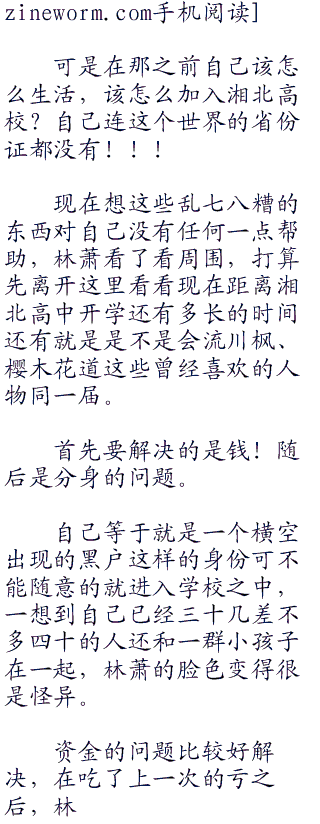 zineworm.com手机阅读]
可是在那之前自己该怎
么生活，该怎么加入湘北高
校？自己连这个世界的省份
证都没有！！！
现在想这些乱七八糟的
东西对自己没有任何一点帮
助，林萧看了看周围，打算
先离开这里看看现在距离湘
北高中开学还有多长的时间
还有就是是不是会流川枫、
樱木花道这些曾经喜欢的人
物同一届。
首先要解决的是钱！随
后是分身的问题。
自己等于就是一个横空
出现的黑户这样的身份可不
能随意的就进入学校之中，
一想到自己已经三十几差不
多四十的人还和一群小孩子
在一起，林萧的脸色变得很
是怪异。
资金的问题比较好解
决，在吃了上一次的亏之
后，林